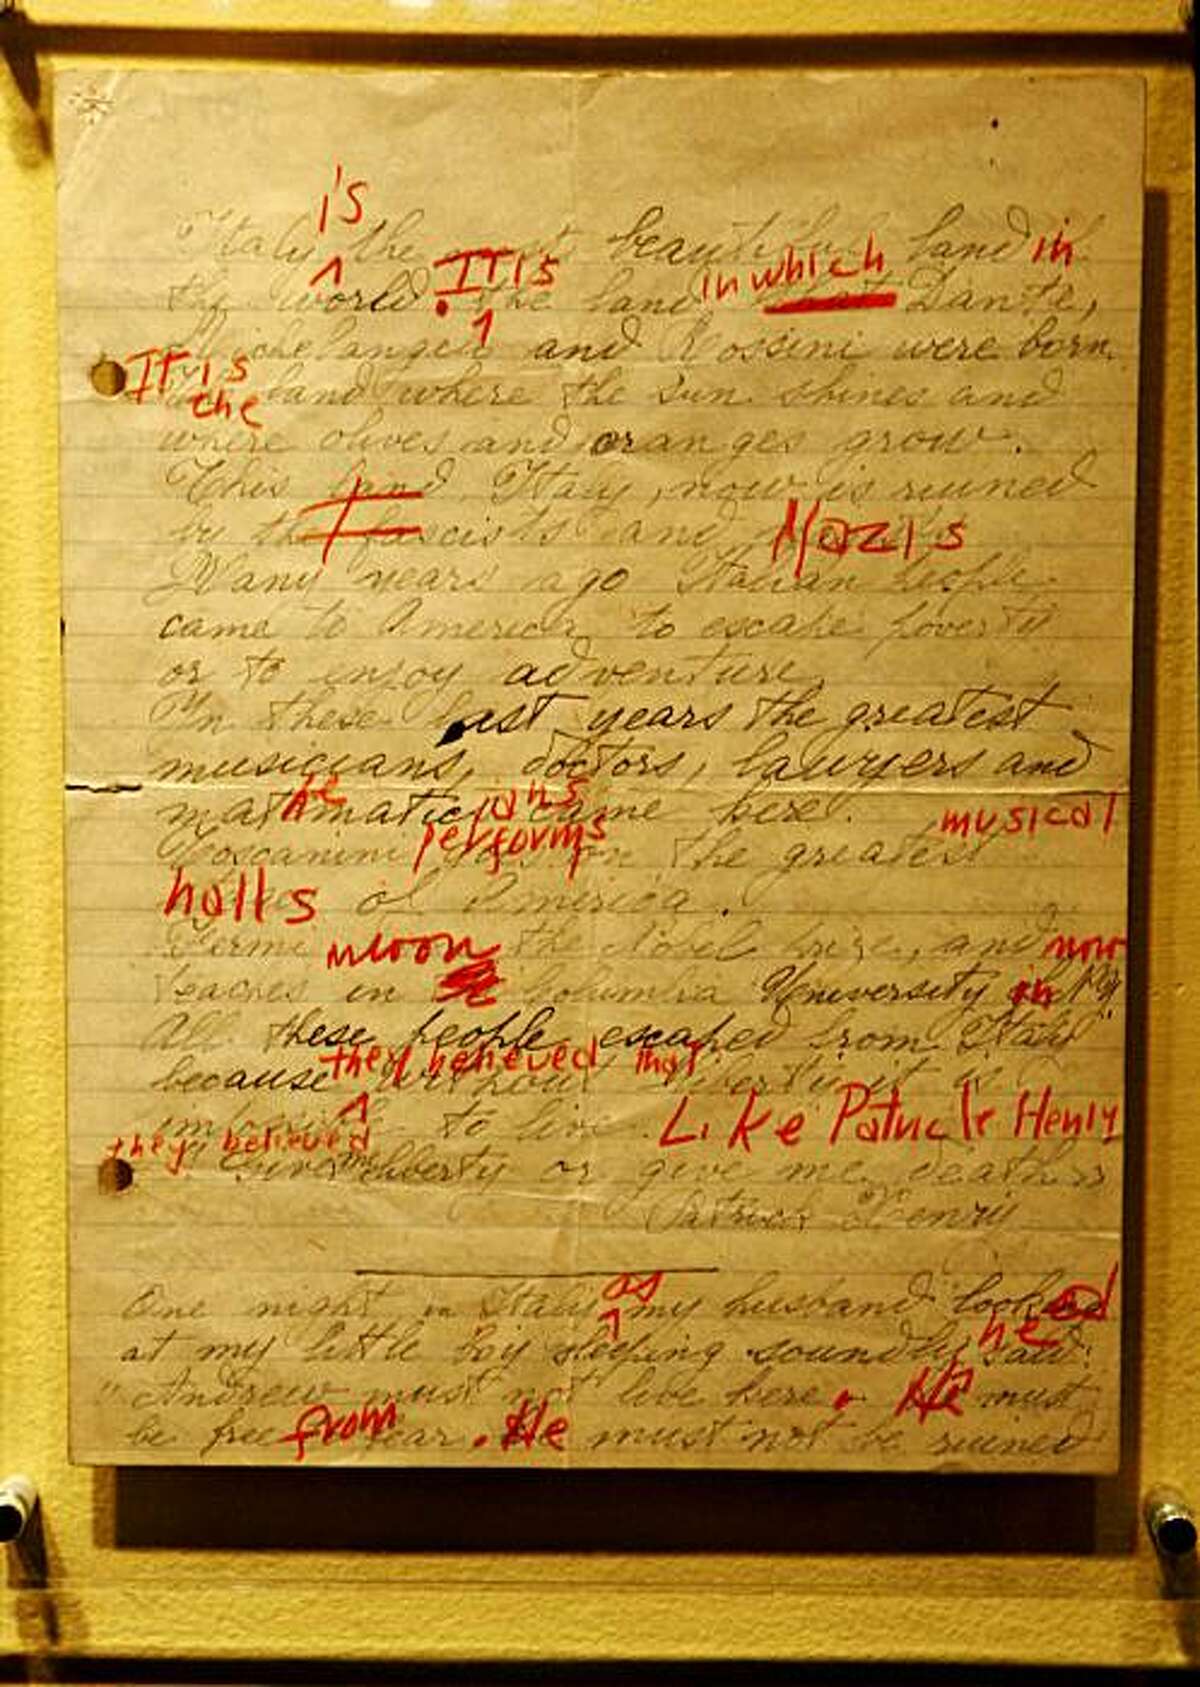 is
Italy ^ the most beautiful land in
It is in which
the world. ^ the land that Dante,
Michelangelo and Rossini were born.
It is
the land where the sun shines and
where olives and oranges grow.
This land Italy, now is ruined
Nazis
by the fascists and
Many years ago Italian people
came to America to escape poverty
or to enjoy adventure.
In these last years the greatest
musicians, doctors, lawyers and
he ians
mathmatic came here.
performs musical
Toscanini on the greatest
halls of America.
Fermi won the Nobel prize, and now
teaches in Columbia University in N.Y.
All these people escaped from Italy
they believed that
because ^ without liberty it is
to live.
they believed Like Patrick Henry
"Give me liberty or give me death"
Patrick Henry
as
One night in Italy ^ my husband looked
he
at my little boy sleeping soundly said:
"Andrew must not live here. He must
be free from fear. He must not be ruined